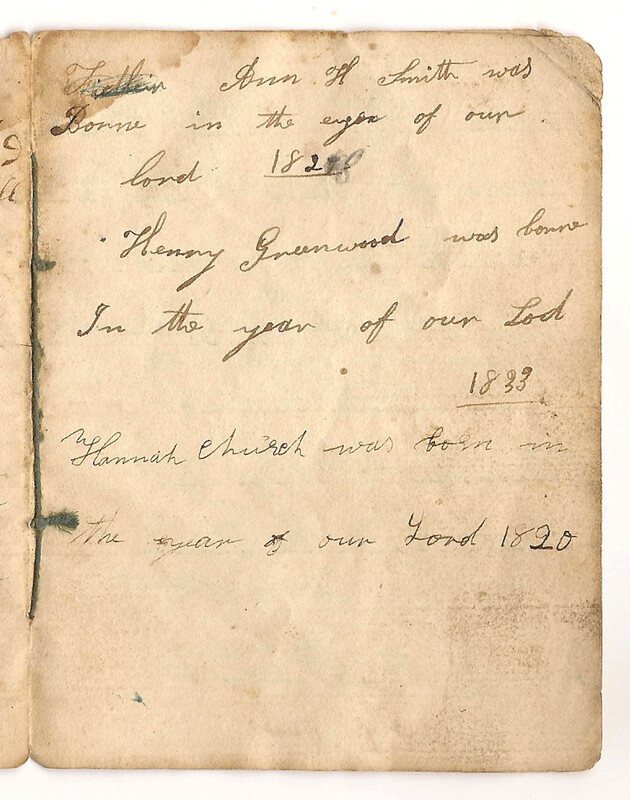 Ann H Smith was
Bonne in the eyea of our
lord 182
Henny Greenwood was bonne
In the year of our Lod
1833
Hannah church was born in
the year of our Lord 1820